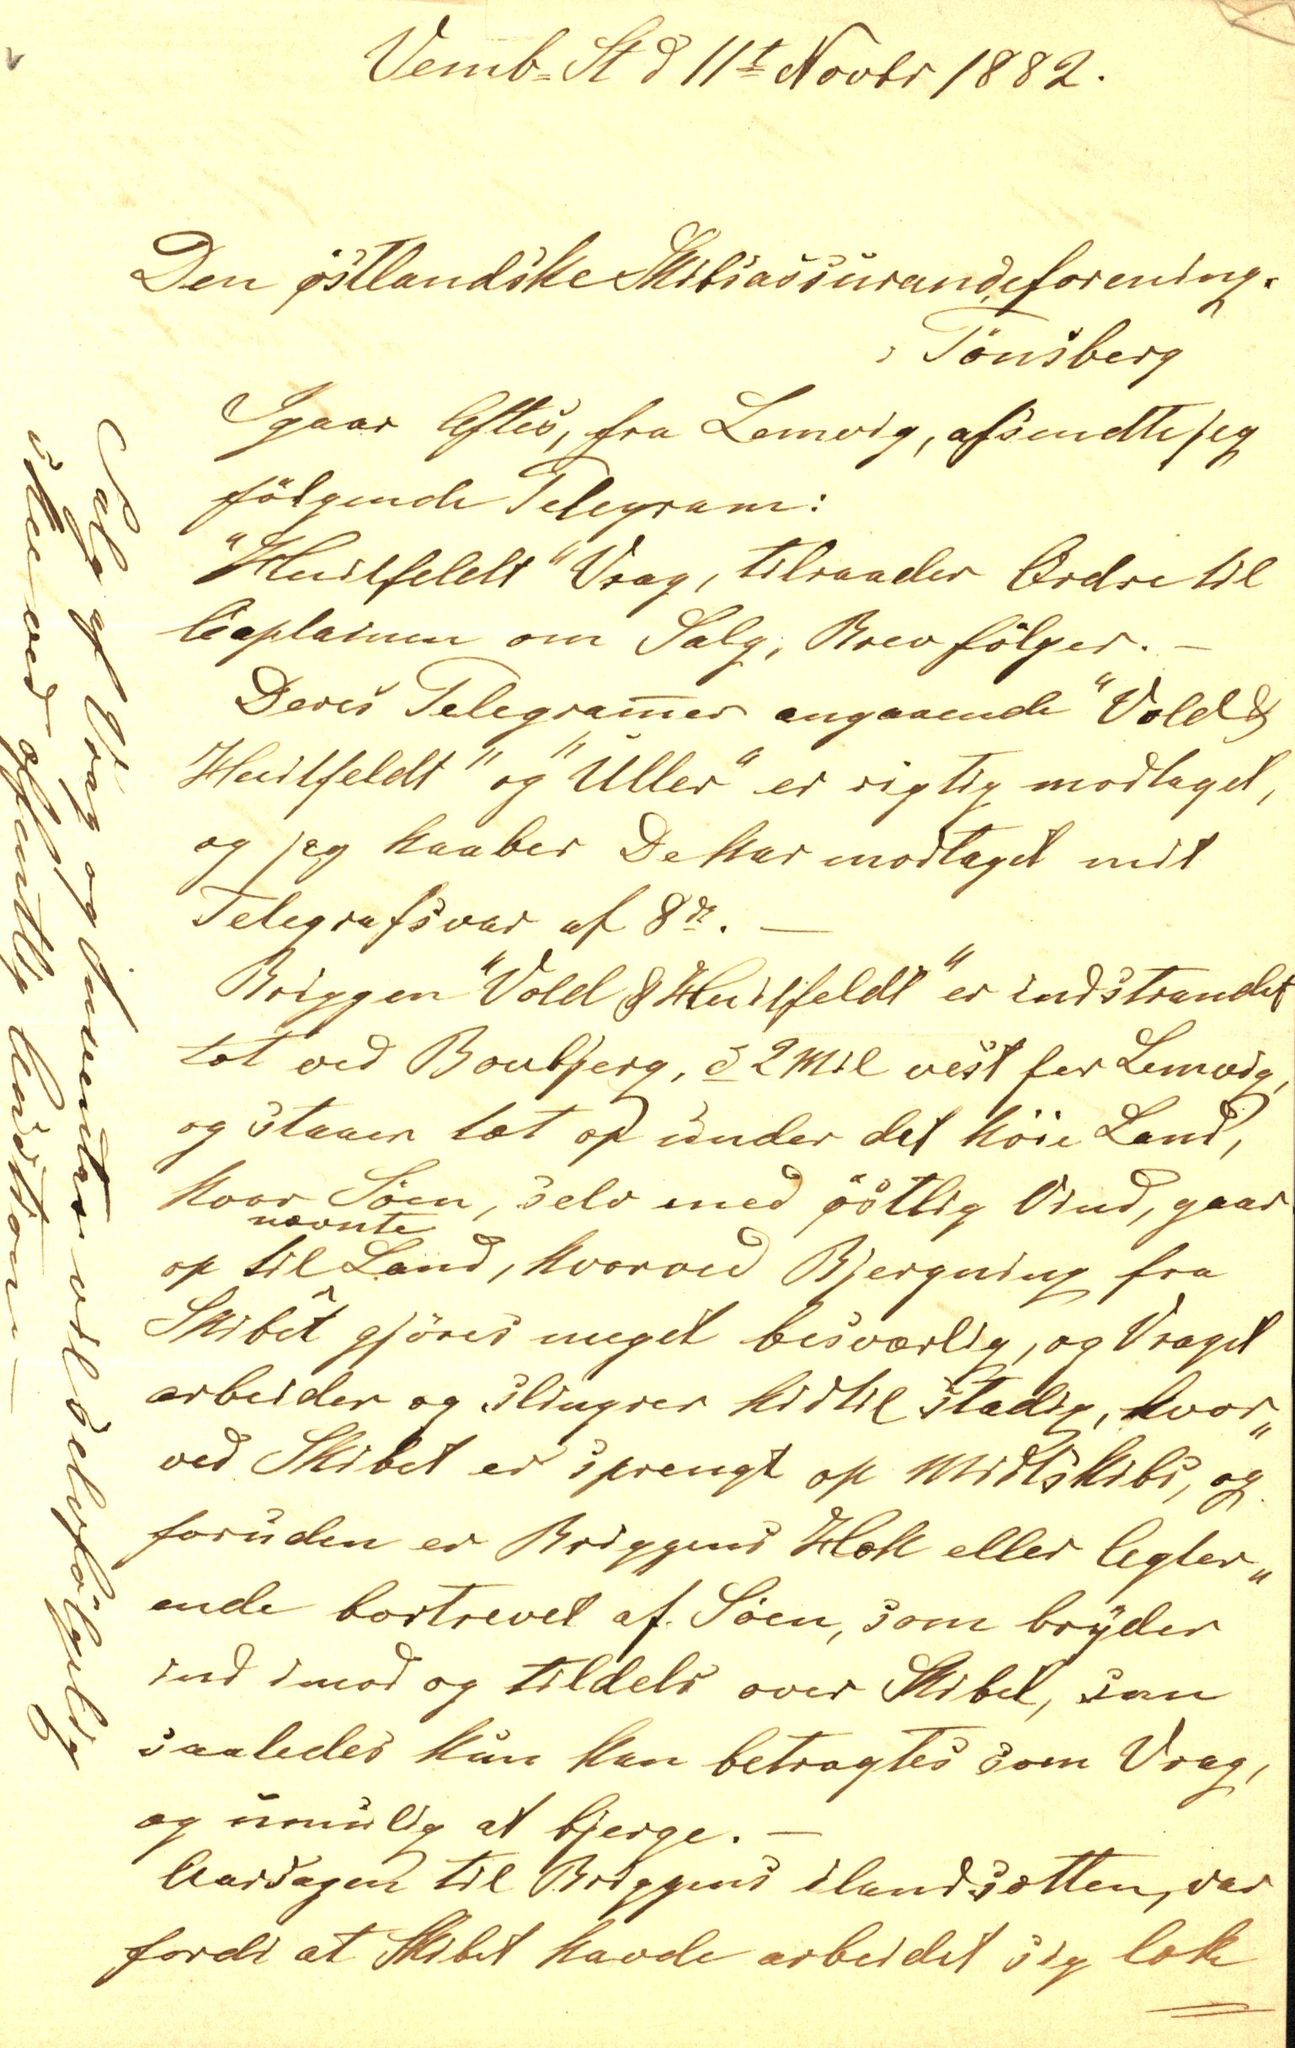 Vemb-St d 11t Novbr 1882.
Den östlandske Skibsassuranceforening.
i Tönsberg
Igaar Aftes, fra Lemvig, afsendte jeg
fölgende Telegram:
"Huitfeldt" Vrag, tilraader Ordre til
Captainen om Salg, Brev fölger. –
Deres Telegram̄er angaaende "Vold &
Huitfeldt" og "Uller" er rigtig modtaget,
og jeg haaber De har modtaget mit
Telegrafsvar af 8de. —
Briggen "Vold & Huitfeldt" er indstrandet
tæt ved Bovbjerg, 2 Mil vest for Lemvig,
og staaer tæt op under det höie Land,
hvor Söen, selv med östlig Vind, gaar
op til nævnte Land, hvorved Bjergning fra
Skibet gjöres meget besværlig, og Vraget
arbeider og slingrer hidtil stadig, hvor„
ved Skibet er sprengt op Midtskibs, og
foruden er Briggens Hæk eller Agter„
ende bortrevet af Söen, som bryder
ind imod og tildels over Skibet, som
saaledes kun kan betragtes som Vrag,
og umulig at bjerge. —
Aarsagen til Briggens ilandsætten, var
fordi at Skibet havde arbeidet sig læk
Salg af Vrag og Inventar vil selvfölgelig
skee ved offentlig Auction. —